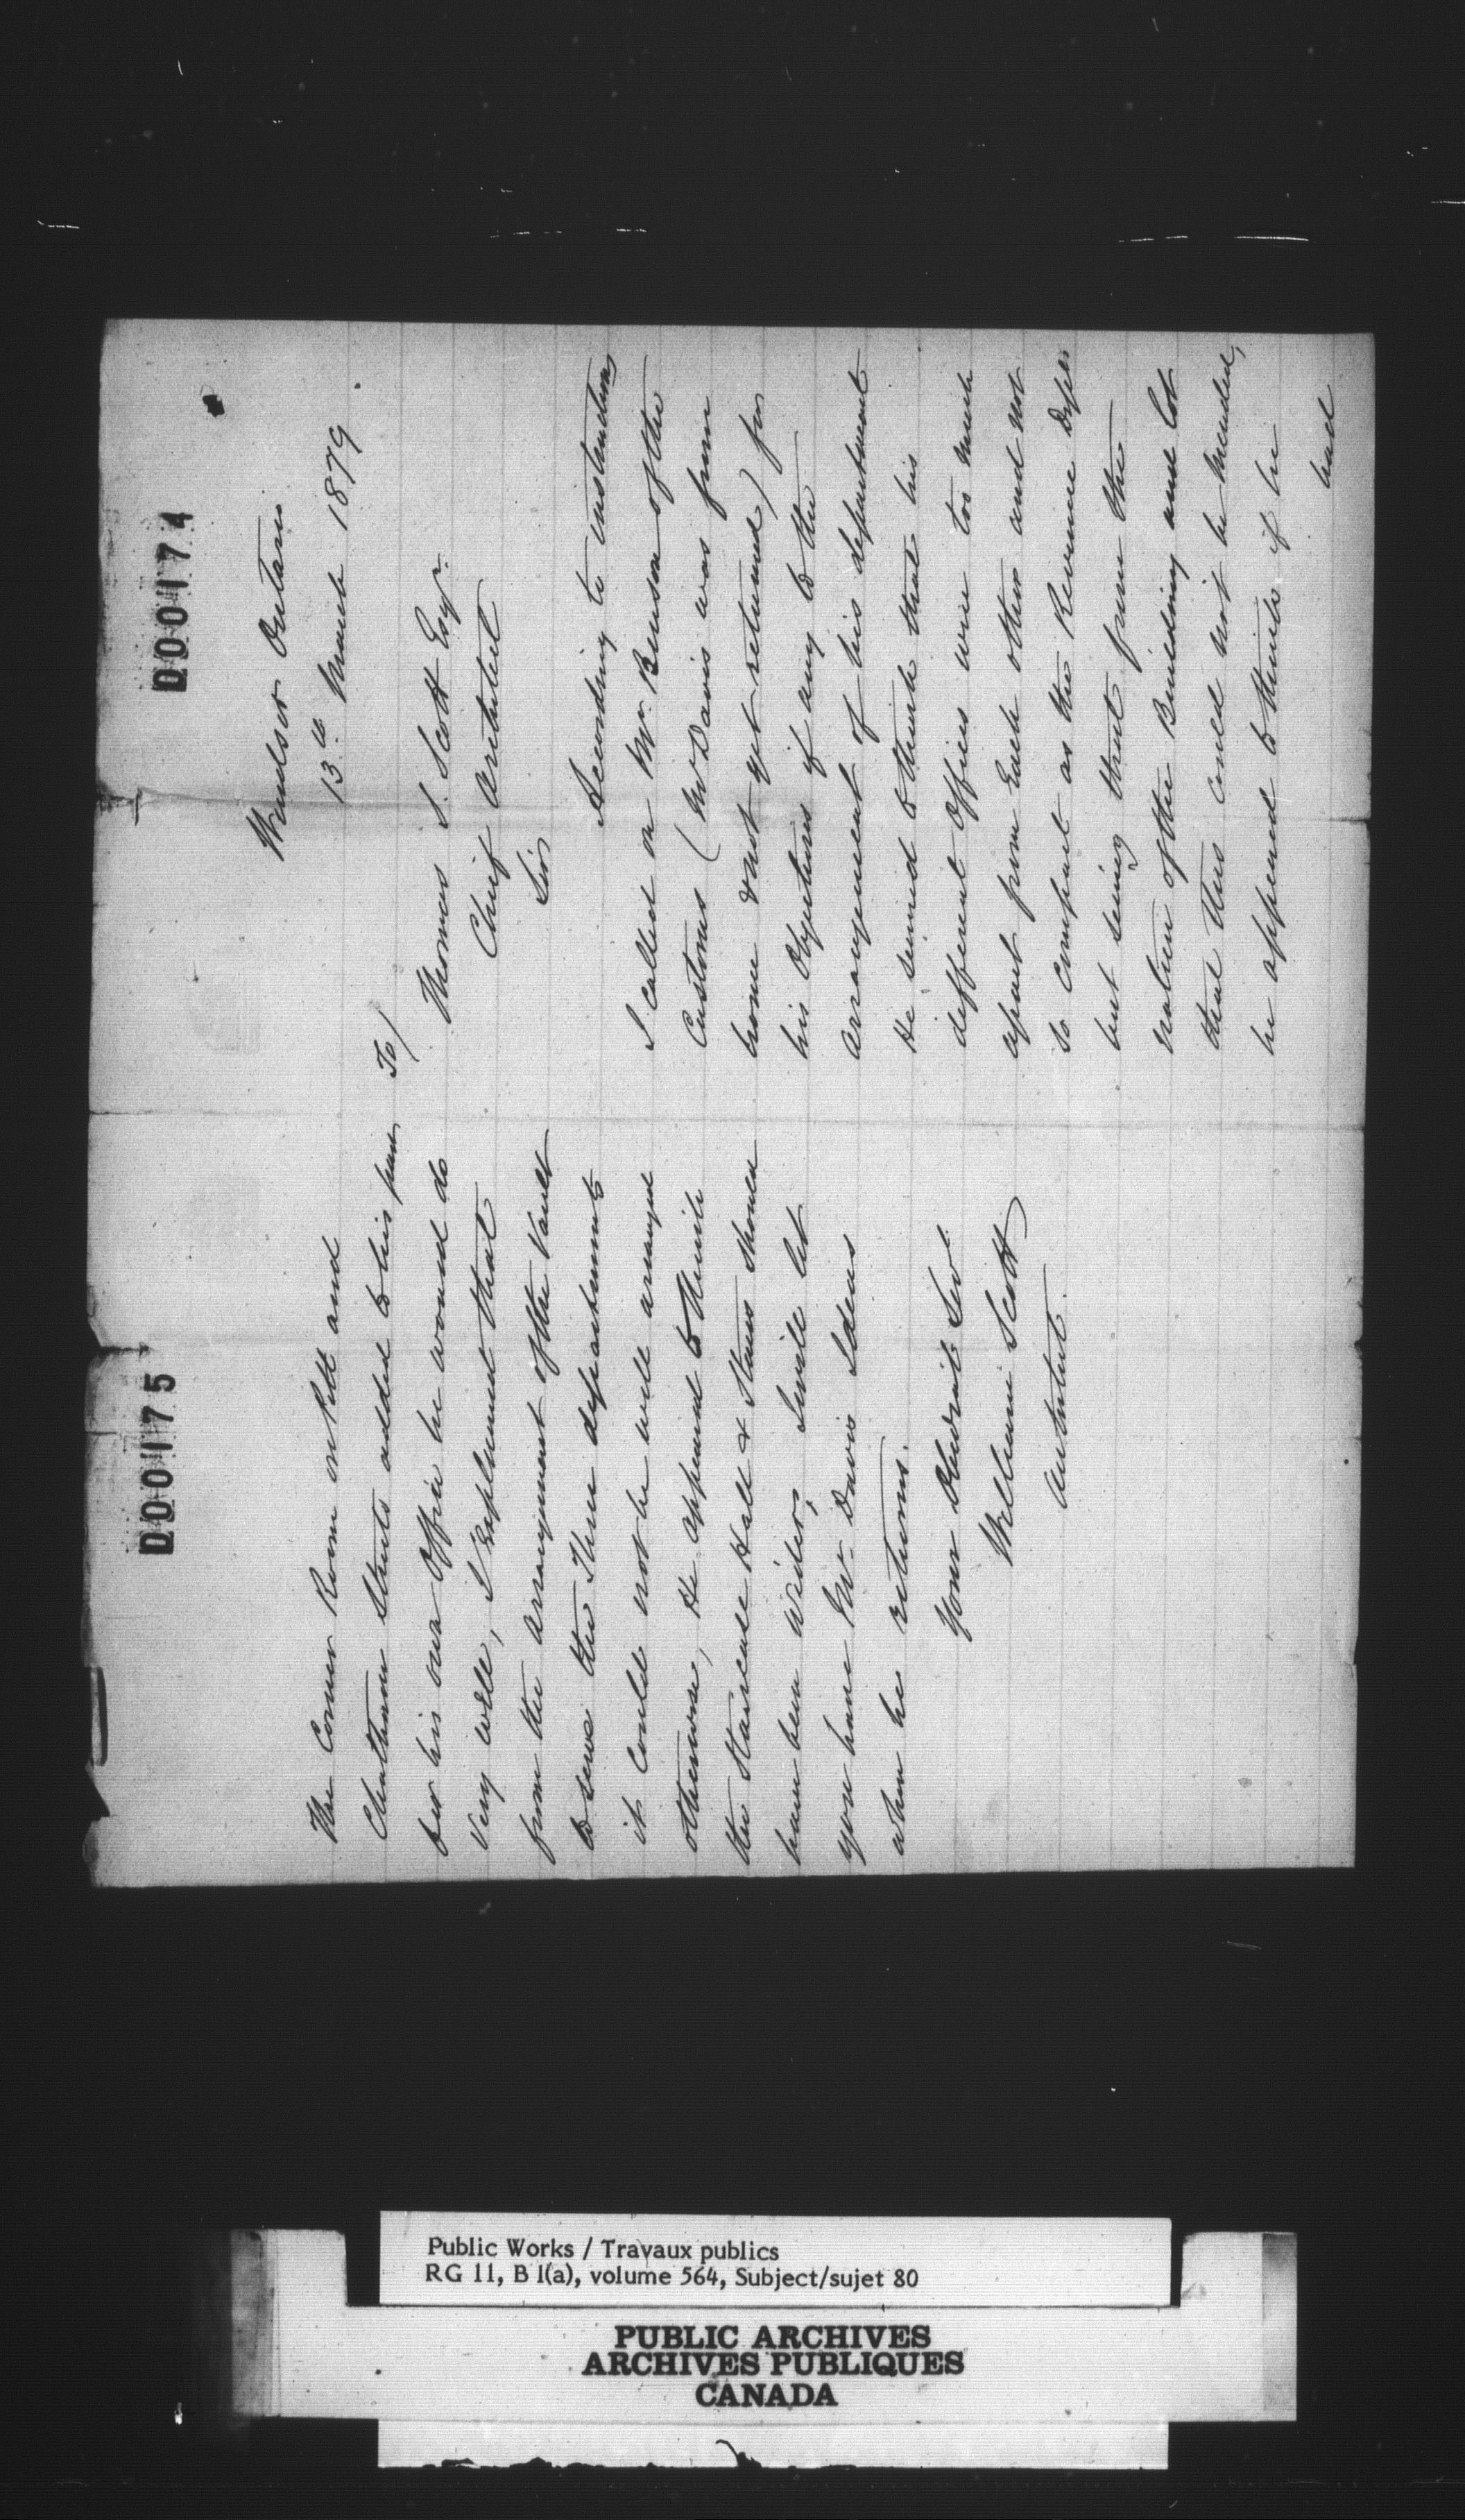 000174
Windsor Ontario
13th March 1879
To/
Thomas S. Scott Esqr.
Chief Architect
Sir
According to instructions
I called on Mr. Benson of the
Customs (Mr Davis was from
home & not yet returned) for
his Objections if any to the
arrangement of his department
He seemed to think that his
different Offices were too much
apart from Each other and not
so compact as the Revenue Dept
but seeing that from the
nature of the Building and lot
that this could not be mended,
he appeared to think if he
had
000175
The Corner Room on Pitt and
Chatham Streets added to his part
for his own Office he would do
very well, I Explained that
from the arrangement of the Vault
to serve the Three departments
it could not be well arranged
otherwise, He appeared to think
the Staircase Hall & Stairs should
have been wider, I will let
you have Mr Davis Ideas
when he returns.
Your Obedient Servt.
William Scott
Architect.
Public Works / Travaux publics
RG 11, B 1(a), volume 564, Subject/sujet 80
PUBLIC ARCHIVES
ARCHIVES PUBLIQUES
CANADA